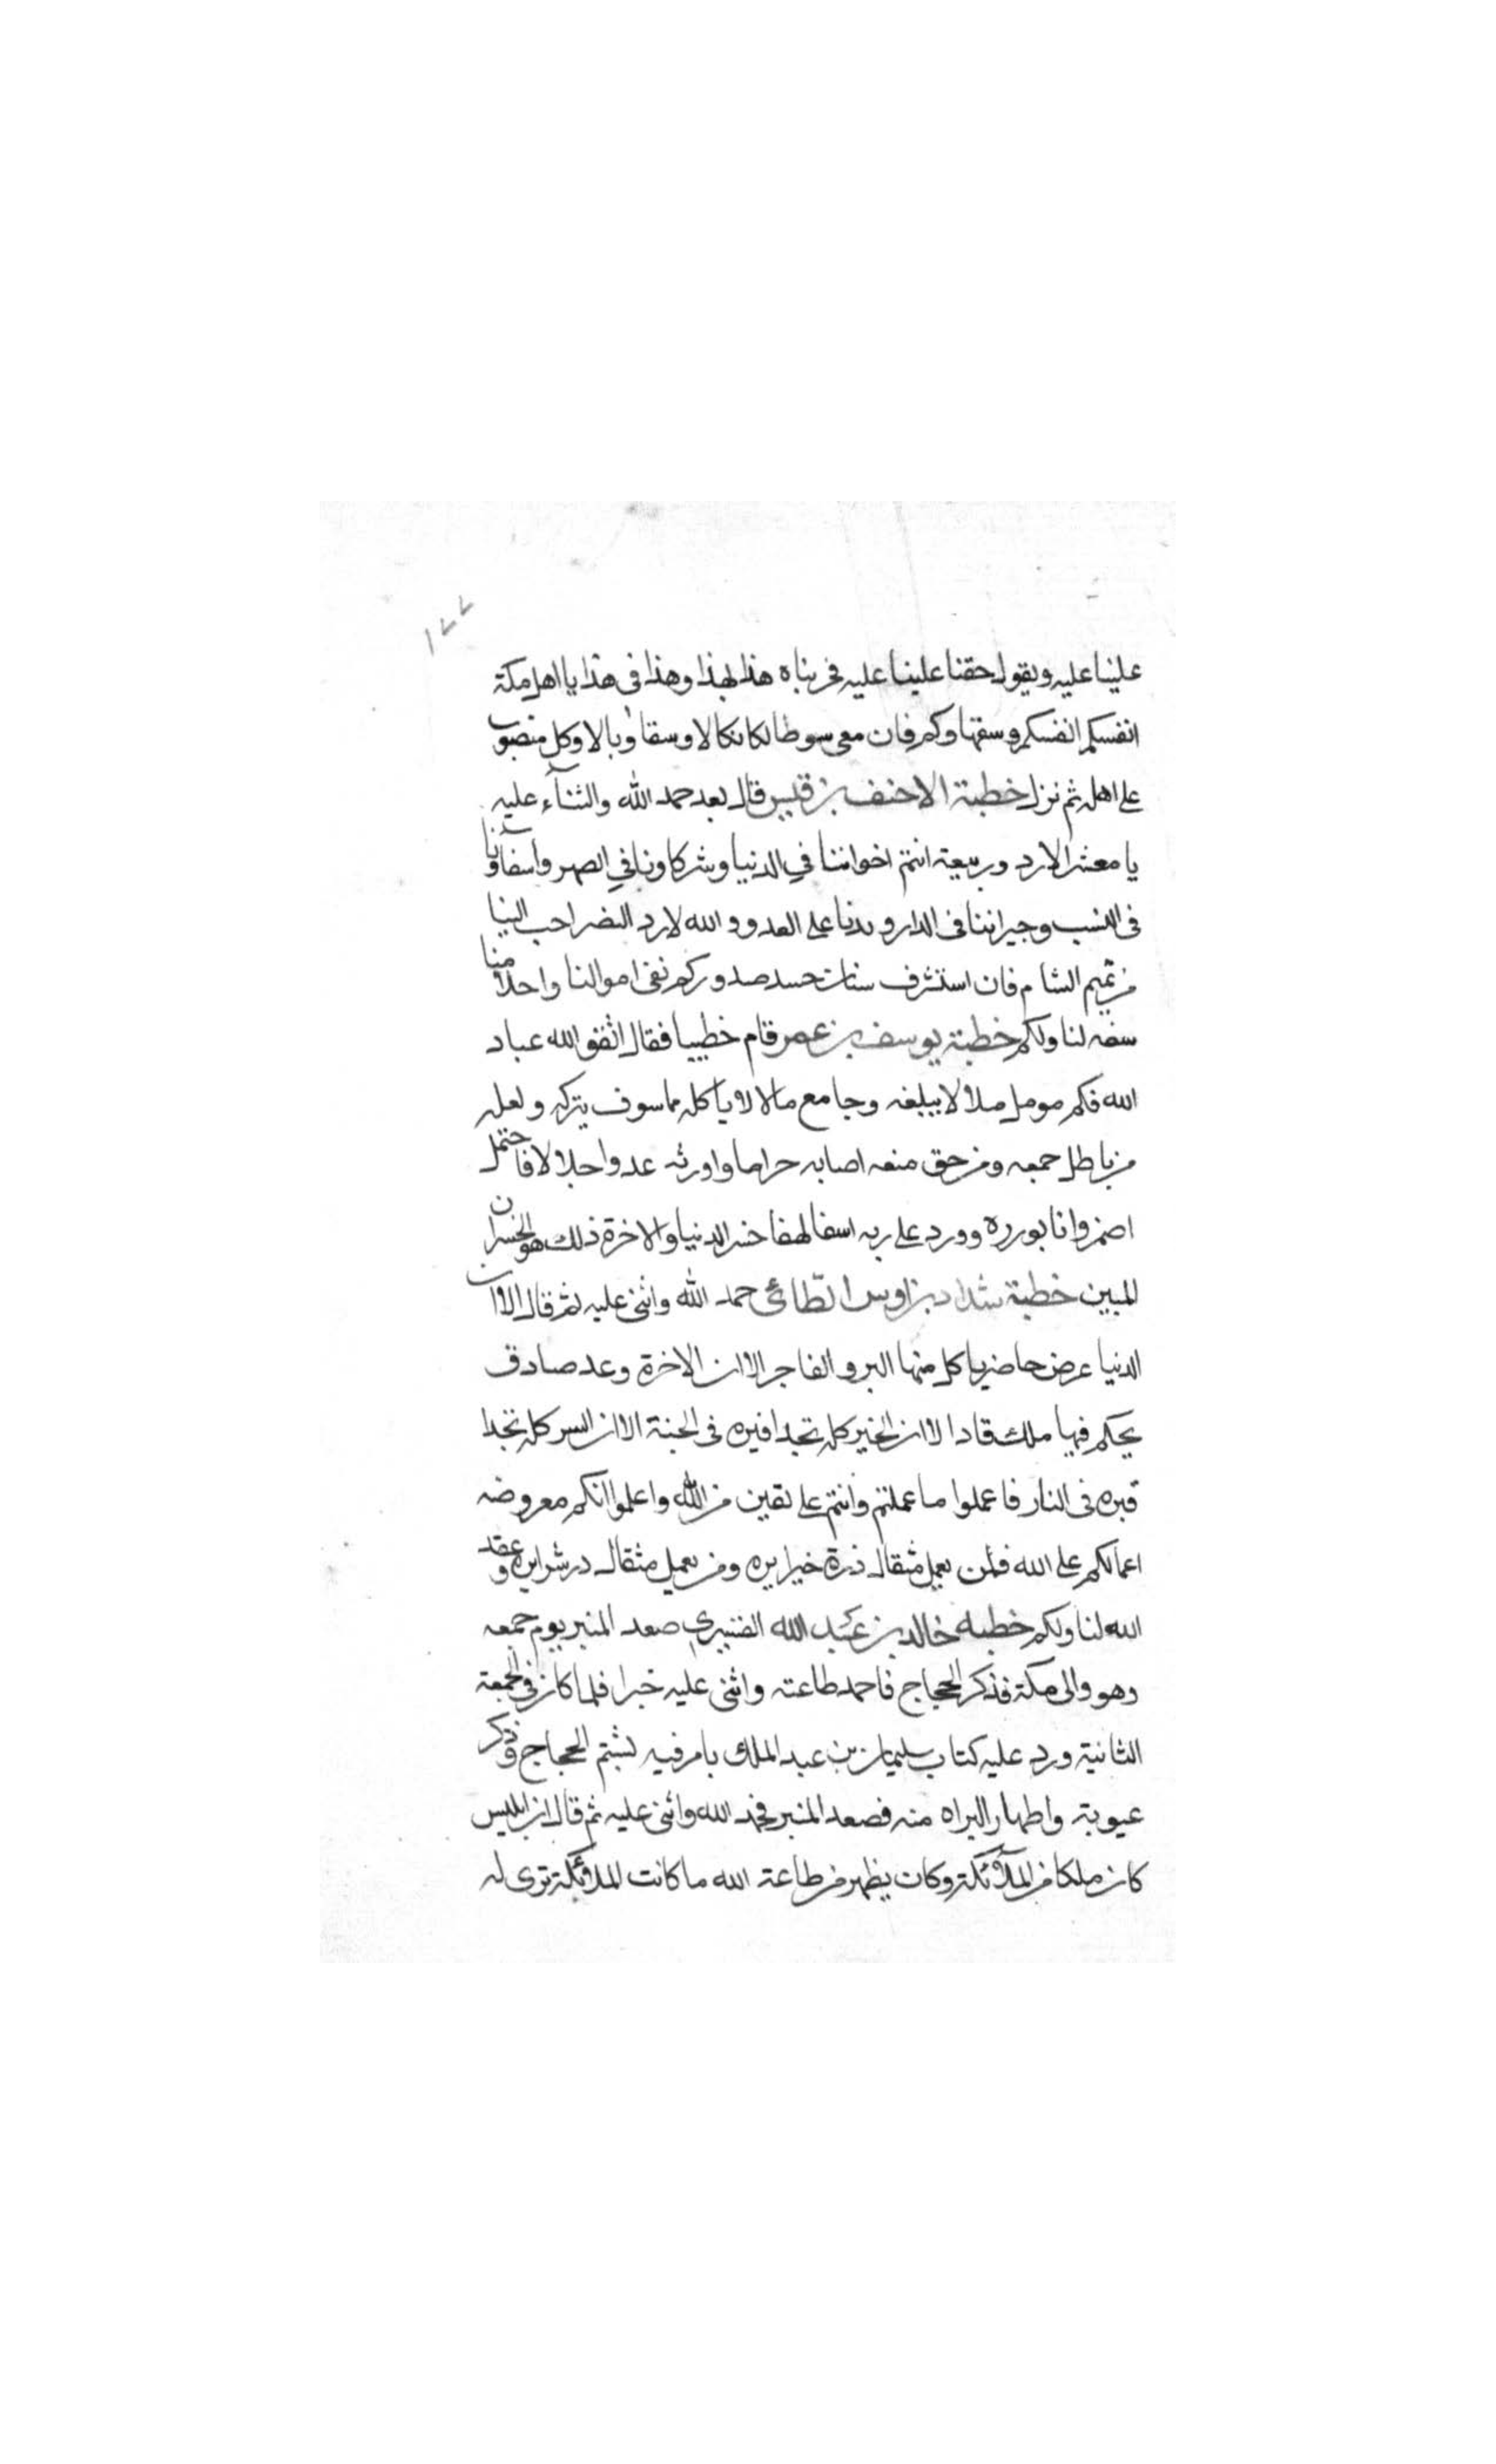 ١٧٧
علينا عليه ويقول حقنا علينا عليه فخربناه هذا لهذا وهذا فى هذا يا اهل مكة
انفسكم انفسكم وسفهاوكم فان معى سوطا نكالا وسقا وبالا وكل منصوب
على اهله ثم نزل خطبة الاحنف بن قيس قال بعد حمد الله والثناء عليه
يا معشر الازد وربيعة انتم اخواننا في الدنيا وشركاونا في الصهر واسقاونا
فى النسب وجيراننا فى الدار ويدنا على العدو والله لازد البضر احب الينا
من تميم الشام فان استشرف سنات حسد صدوركم نفى اموالنا واحلامنا
سعه لنا ولكم خطبة يوسف بن عمر قام خطيبا فقال اتقو الله عباد
الله فكم مومل ملا لا يبلغه وجامع مالا لا ياكله مما سوف يتركه ولعله
من باطل جمعه ومن حق منعه اصابه حراما واورثه عدوا حلالا فاحتمل
اصره وانا بورره وورد على ربه اسفا لهفا خسر الدنيا والاخرة ذلك هو الخسران
المبين خطبة شداد بن اوس الطائى حمد الله واثنى عليه ثم قال الا ان
الدنيا عرض حاضر ياكل منها البر والفاجر الا ان الاخرة وعد صادق
يحكم فيها ملك قادا الا ان الخير كله تجدافيره فى الجنة الا ان السر كله تجدا
قبره فى النار فاعملوا ما عملتم وانتم على يقين من الله واعلموا انكم معروضه
اعمالكم على الله فلمن يعمل مثقال ذرة خيرا يره ومن يعمل مثقال در شرا يره وعقد
الله لنا ولكم خطبه خالد بن عبد الله القتيبري صعد المنبر يوم جمعه
وهو والى مكة فذكر الحجاج فاحمد طاعته واثنى عليه خيرا فلما كان فى الجمعة
الثانية ورد عليه كتاب سليمان بن عبد الملك يامر فيه بشتم الحجاج وذكر
عيوبة واطهار البراه منه فصعد المنبر فحمد الله واثنى عليه ثم قال ان ابليس
كان ملكا من الملآئكة وكان يظهر من طاعة الله ما كانت الملائكة ترى له